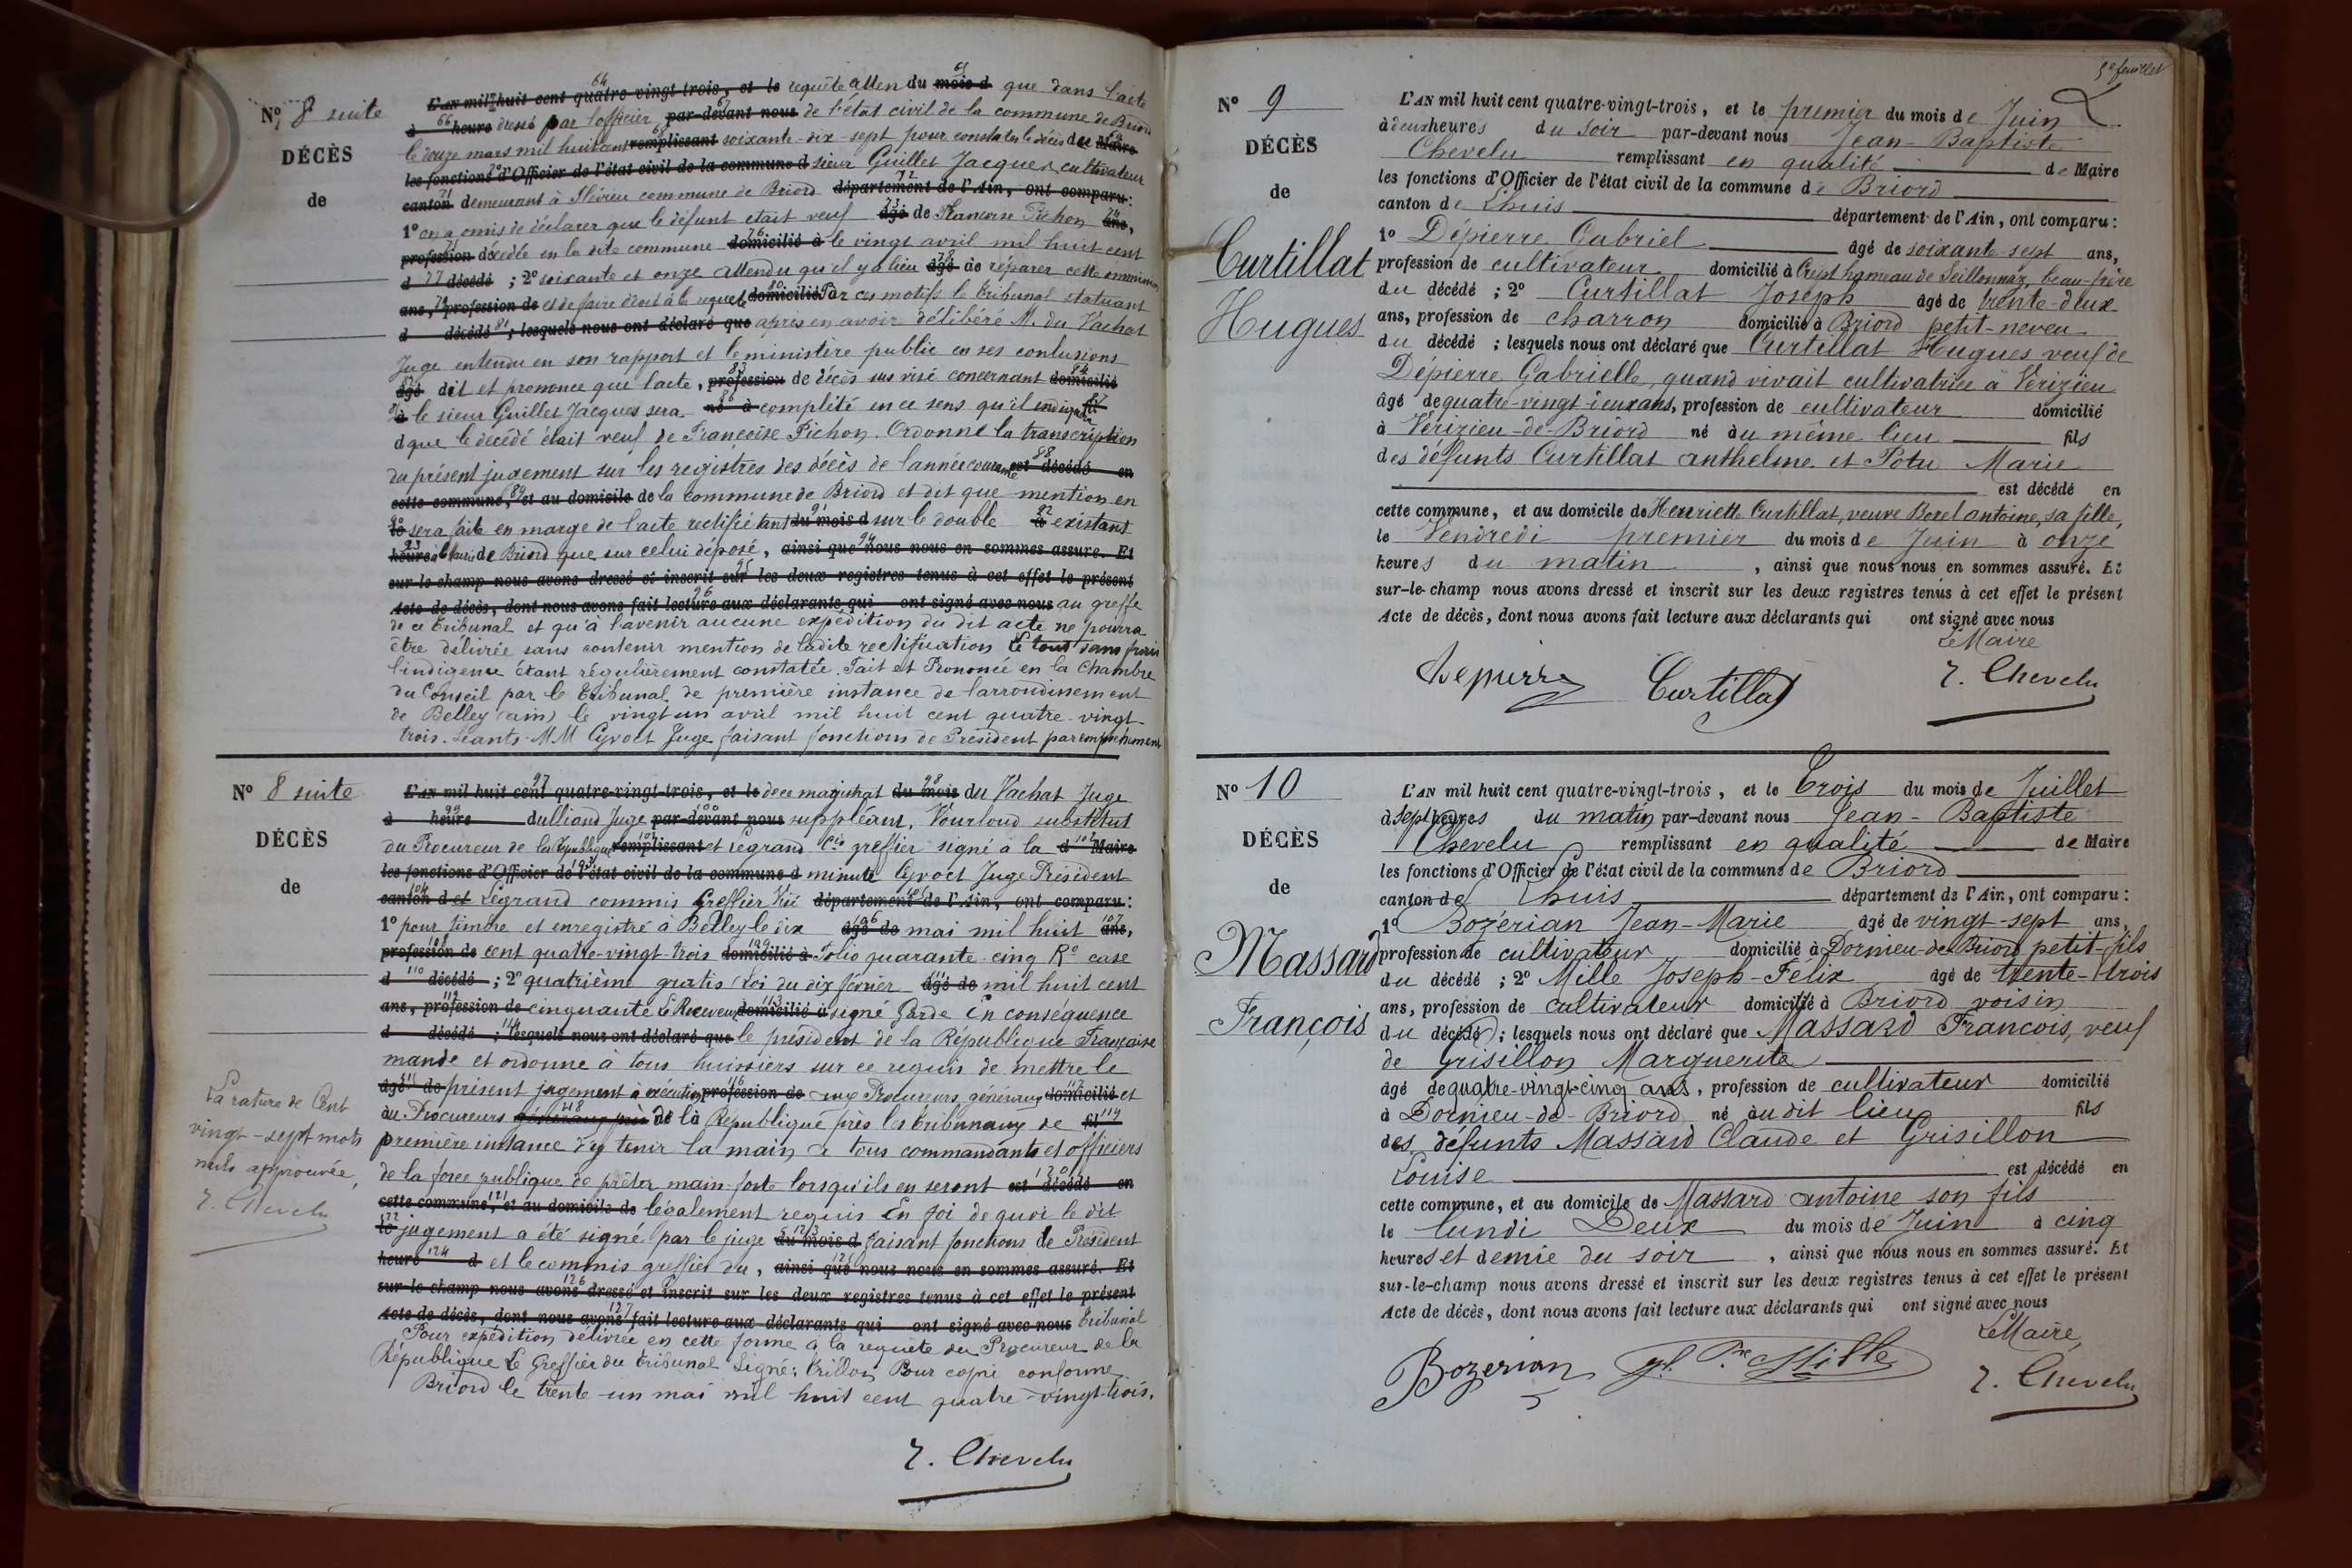 Nº 8 suite
DÉCÈS
de
L'AN mil huit cent quatre-vingt-trois, et le requête atten du mois d que dans l'acte
à heure dressé par l'officier par-devant nous de l'état civil de la commune de Briord
le douze mars mil huit cent remplissant soixante-dix-sept pour constater le décès du Maire
les fonctions d'Officier de l'état civil de la commune d sieur Guillet Jacques cultivateur
canton demeurant à commune de Briord département de l'Ain, ont comparu:
1º on a omis de déclarer que le défunt etait veuf âgé de Francoise Pichon ans,
profession décédée en la dite commune domicilié à le vingt avril mil huit cent
d 77 décédé ; 2º soixante et onze attendu qu'il y a lieu âgé de réparer cette ommission
ans, profession de et de faire droit à la requete domicilié Par ces motifs le tribunal statuant
d décédé ; lesquels nous ont déclaré que après en avoir délibéré M. du Vachat
Juge entendu en son rapport et le ministère public en ses conlusions
âgé dit et prononce que l'acte, profession de décès sus visé concernant domicilié
à le sieur Guillet Jacques sera né à complété en ce sens qu'il indiquera
d que le décédé était veuf de Francoise Pichon. Ordonne la transcription
du présent jugement sur les registres des décès de l'année courante est décédé en
cette commune, et au domicile de la commune de Briord et dit que mention en
le sera faite en marge de l'acte rectifié tant du mois d sur le double à existant
heure à la mairie de Briord que sur celui déposé, ainsi que nous nous en sommes assuré. Et
sur-le-champ nous avons dressé et inscrit sur les deux registres tenus à cet effet le présent
Acte de décès, dont nous avons fait lecture aux déclarants qui ont signé avec nous au greffe
de ce tribunal et qu'à l'avenir aucune expédition du dit acte ne pourra
être délivrée sans contenir mention de ladite rectification le tout sans frais
l'indigence étant régulièrement constatée. Fait et Prononcé en la Chambre
du Conseil par le tribunal de première instance de l'arrondissement
de Belley (ain) le vingt un avril mil huit cent quatre-vingt-
trois. Séants MM Cyvoct Juge faisant fonctions de Président par empêchement
Nº 8 suite
DÉCÈS
de
L'AN mil huit cent quatre-vingt-trois, et le de ce magistrat du mois du Vachat Juge
à heure dulliand Juge par-devant nous suppléant, Vourloud substitut
du Procureur de la République remplissant et Legrand Cis greffier signé à la d Maire
les fonctions d'Officier de l'état civil de la commune d minute Cyvoct Juge Président
canton d et Legrand commis Greffier Visé département de l'Ain, ont comparu:
1º pour timbre et enregistré à Belley le dix âgé de mai mil huit ans,
profession de cent quatre-vingt-trois domicilié à Folio quarante-cinq Rº case
d 110 décédé ; 2º quatrième gratis Loi du dix février âgé de mil huit cent
ans, profession de cinquante Le Receveur domicilié à signé Garde En conséquence
d décédé ; lesquels nous ont déclaré que le président de la République Française
mande et ordonne à tous huissiers sur ce requis de mettre le
âgé de présent jugement à exécution profession de aux Procureurs généraux domicilié et
au Procureurs généraux près de la République près les tribunaux de fil 119
première instance d'y tenir la main à tous commandants et officiers
de la force publique de prêter main-forte lorsqu'ils en seront est décédé en
cette commune, et au domicile de légalement requis En foi de quoi le dit
le jugement a été signé par le juge du mois d faisant fonctions de Président
heure 124 d et le commis greffier du, ainsi que nous nous en sommes assuré. Et
sur-le-champ nous avons dressé et inscrit sur les deux registres tenus à cet effet le présent
Acte de décès, dont nous avons fait lecture aux déclarants qui ont signé avec nous tribunal
Pour expédition délivrée en cette forme à la requête du Procureur de la
République Le Greffier du tribunal Signé: Trillon Pour copie conforme
Briord le trente-un mai mil huit cent quatre-vingt-trois.
J. Chevelu
La rature de Cent
vingt-sept mots
nuls approuvée,
J. Chevelu
5e feuillet
Nº 9
DÉCÈS
de
Curtillat
Hugues
L'AN mil huit cent quatre-vingt-trois, et le premier du mois de Juin
à deux heures du soir par-devant nous Jean-Baptiste
Chevelu remplissant en qualité de Maire
les fonctions d'Officier de l'état civil de la commune de Briord
canton de Lhuis département de l'Ain, ont comparu:
1º Dépierre Gabriel âgé de soixante-sept ans,
profession de cultivateur domicilié à Crept hameau de Seillonnaz, beau-frère
du décédé ; 2º Curtillat Joseph âgé de trente-deux
ans, profession de charron domicilié à Briord petit-neveu
du décédé ; lesquels nous ont déclaré que Curtillat Hugues veuf de
Dépierre Gabrielle, quand vivait cultivatrice à Vérizieu
âgé de quatre-vingt-deux ans, profession de cultivateur domicilié
à Vérizieu-de-Briord né au même lieu fils
des défunts Curtillat anthelme et Potu Marie
est décédé en
cette commune, et au domicile de Henriette Curtillat, veuve Borel antoine, sa fille,
le Vendredi premier du mois de Juin à onze
heures du matin, ainsi que nous nous en sommes assuré. Et
sur-le-champ nous avons dressé et inscrit sur les deux registres tenus à cet effet le présent
Acte de décès, dont nous avons fait lecture aux déclarants qui ont signé avec nous
Le Maire
Depierre Curtillat J. Chevelu
Nº 10
DÉCÈS
de
Massard
François
L'AN mil huit cent quatre-vingt-trois, et le Trois du mois de Juillet
à Sept heures du matin par-devant nous Jean-Baptiste
Chevelu remplissant en qualité de Maire
les fonctions d'Officier de l'état civil de la commune de Briord
canton de Lhuis département de l'Ain, ont comparu:
1º Bozérian Jean-Marie âgé de vingt-sept ans,
profession de cultivateur domicilié à Dornieu-de-Briord petit-fils
du décédé ; 2º Mille Joseph-Félix âgé de trente-trois
ans, profession de cultivateur domicilié à Briord voisin
du décédé ; lesquels nous ont déclaré que Massard Francois, veuf
de Grisillon Marguerite
âgé de quatre-vingt-cinq ans, profession de cultivateur domicilié
à Dornieu-de-Briord né au dit lieu fils
des défunts Massard Claude et Grisillon
Louise est décédé en
cette commune, et au domicile de Massard antoine son fils
le lundi Deux du mois de Juin à cinq
heures et demie du soir, ainsi que nous nous en sommes assuré. Et
sur-le-champ nous avons dressé et inscrit sur les deux registres tenus à cet effet le présent
Acte de décès, dont nous avons fait lecture aux déclarants qui ont signé avec nous
Le Maire,
Bozerian Mille J. Chevelu